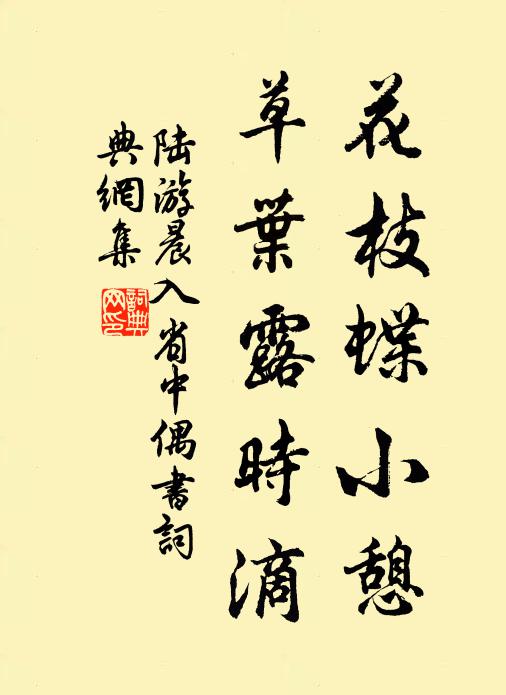 花枝蝶小憩
草葉露時滴
陸游晨入省中偶書詞
典網集
詞典網印